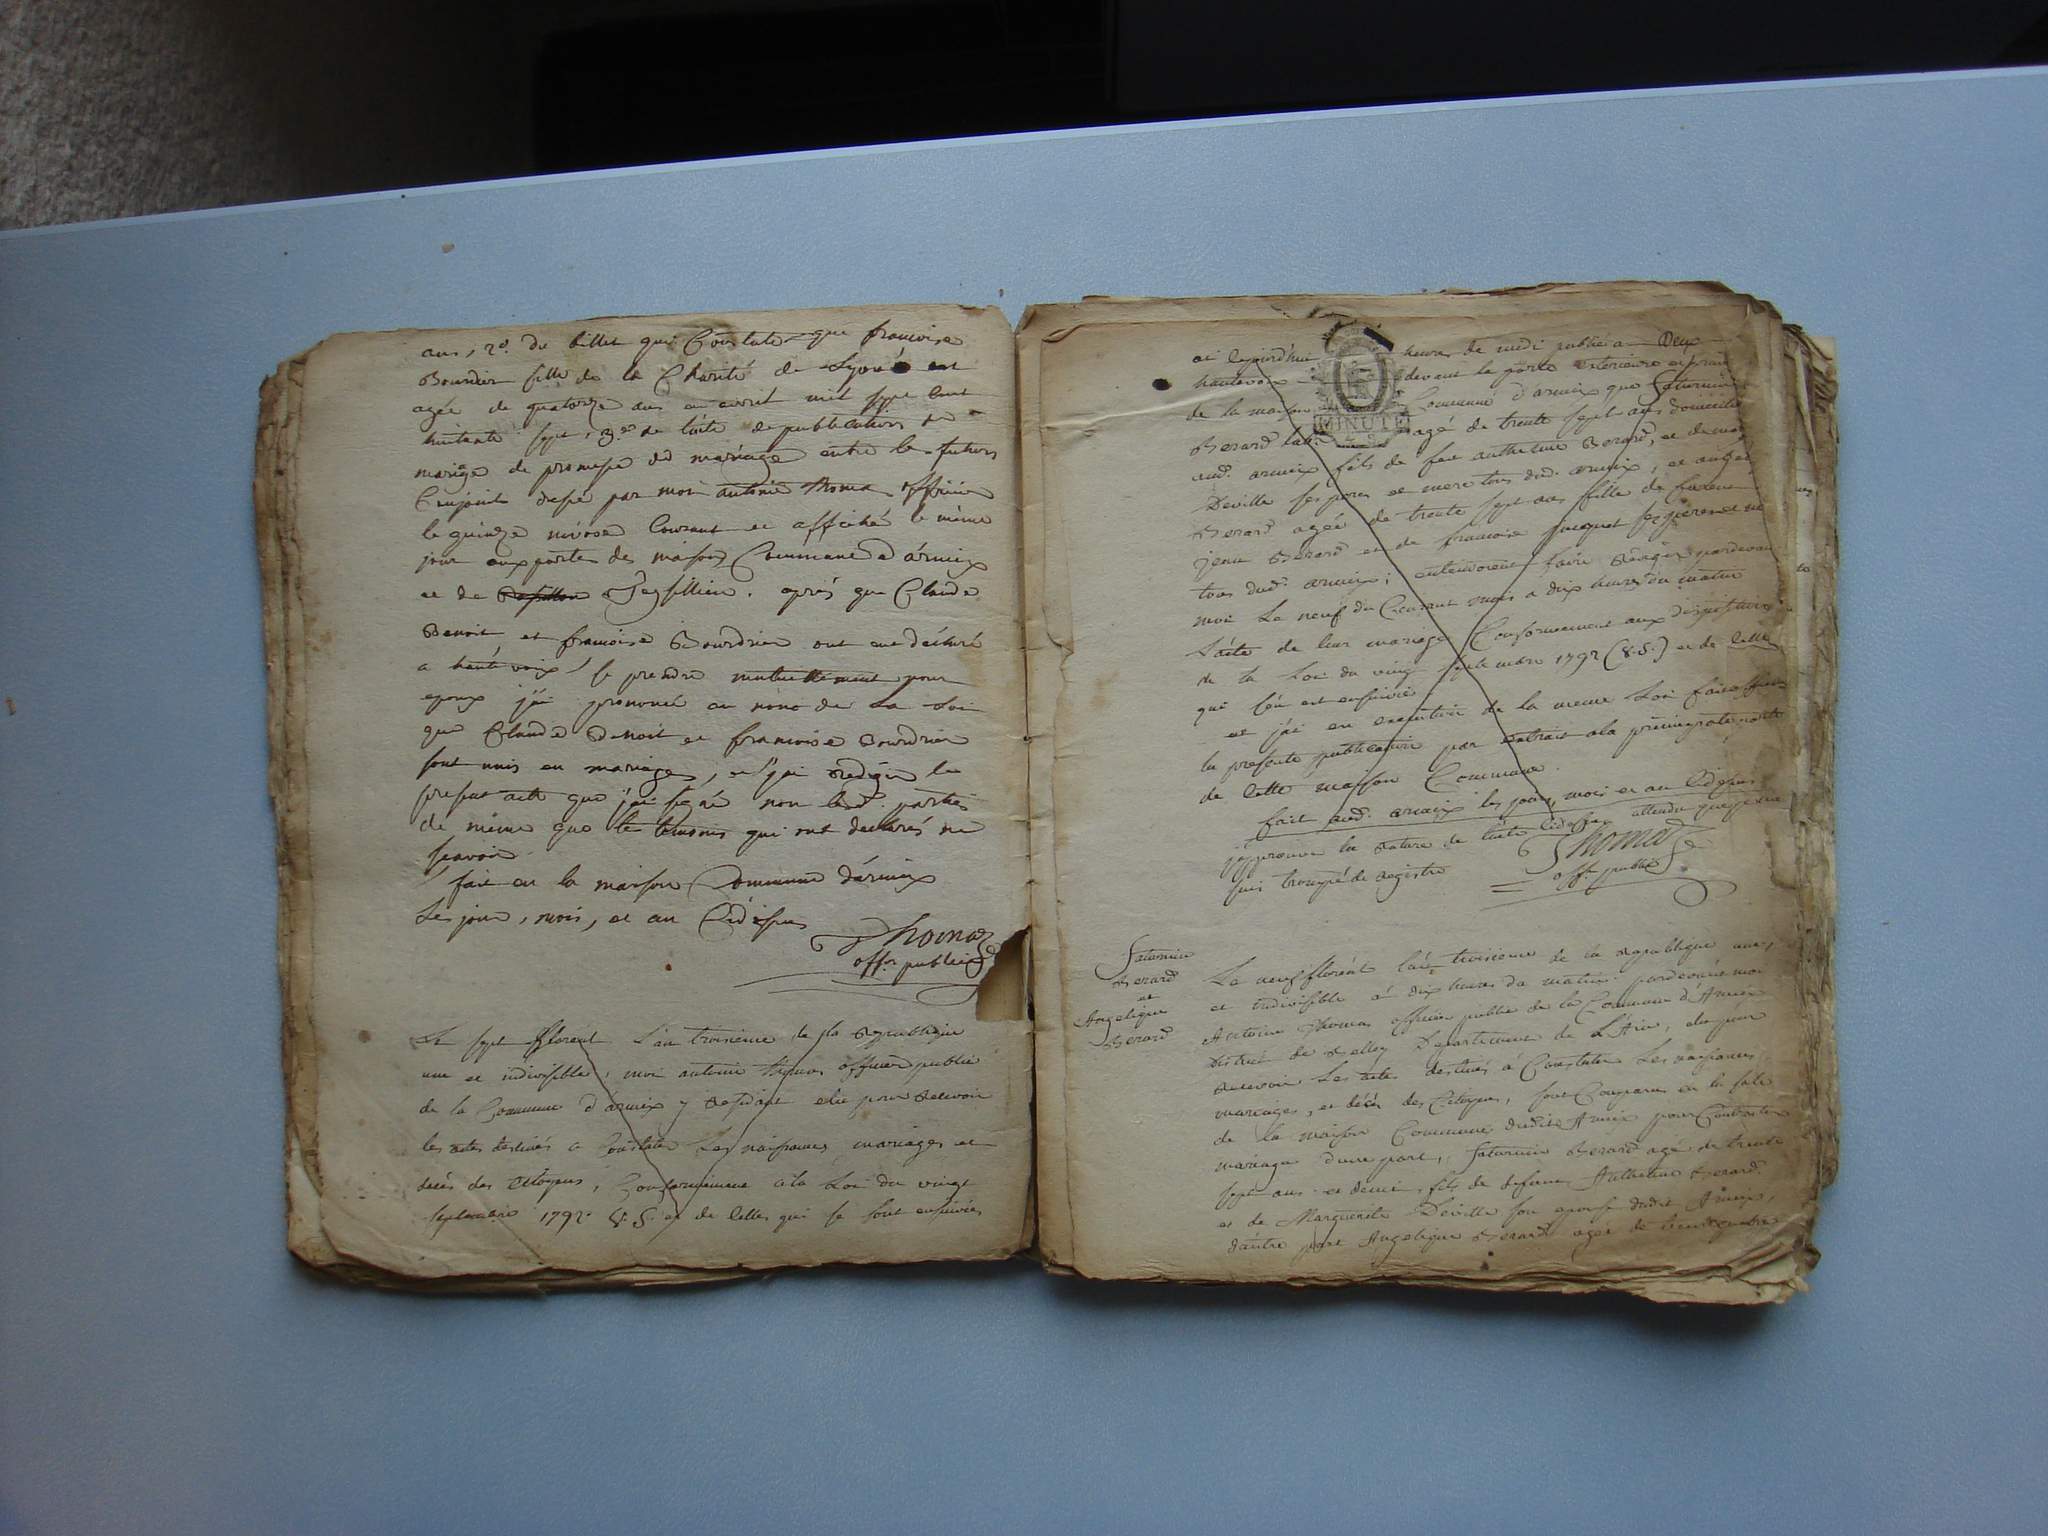 ans, 2o. du billet qui Constate que francoise
Bourdier fille de la Charité de Lyon est
agée de quatorze ans en avril mil sept cent
huitante sept, 3o. de l'acte de publication de
mariage de promesse de mariage entre les futurs
Conjoints dressé par moi antoine thomas officier
le quinze nivose Courant et affiché le même
jour aux portes des maisons Commune d'armix
et de apres que Claude
Benoit et francoise Bourdier ont eu declaré
a haute voix se prendre mutuellement pour
epoux j'ai prononcé au nom de La Loi
que Claude Benoit et francoise Bourdier
sont unis en mariage, et j'ai redigé le
present acte que j'ai signé non lesd. parties
de même que les temoins qui ont declarés ne
scavoir
fait en la maison Commune d'armix
Les jour, mois, et an Cidessus
Thomas
offr. public
Le sept floreal L'an troisieme de la Republique
une et indivisible, moi antoine thomas officier public
de la Commune d'armix y residant elu pour recevoir
les actes destinés a Constater Les naissances, mariages et
decès des Citoyens, Conformement a la Loi du vingt
septembre 1792. V.S. et de Celles qui se sont ensuivies
ai cejourd'hui heures de midi publié a Deux
hautevoix devant la porte exterieure et
de la maison Commune d'armix que Saturnin
Berard agé de trente sept ans domicilié
aud. armix fils de feu anthelme Berard, et de
Deville ses pere et mere tous dud. armix, et
Berard agée de trente sept ans fille de
Berard et de francoise Jacquet ses pere et
tous dud. armix; entendoient faire rediger pardevant
moi Le neuf du Courant mois a dix heures du matin
L'acte de leur mariage Conformement aux dispositions
de la Loi du vingt septembre 1792 (V.S.) et de Celle
qui s'en est ensuivie
et j'ai en execution de la meme Loi fait afficher
la presente publication par extrait a la porte
de Cette maison Commune.
fait aud. armix les jour, mois et an Cidessus
j'approuve la rature de l'acte Cidessus attendu que je me
suis trompé de registre
Thomas
offr. public
Saturnin
Berard
et
Angelique
Berard
Le neuf floreal l'an troisieme de la Republique une,
et indivisible à dix heures du matin pardevant moi
Antoine Thomas officier public de la Commune d'Armix
District de Belley Departement de L'Ain, elu pour
recevoir Les actes destinés à Constater Les naissances,
mariages, et décès des Citoyens, sont Comparus en la sale
de la maison Commune dudit Armix pour Contracter
mariage d'une part, Saturnin Berard agé de trente
sept ans et demi, fils de defunt Anthelme Berard
et de Marguerite Deville son epouse dudit Armix,
d'autre part Angelique Berard agée de
MINUTE